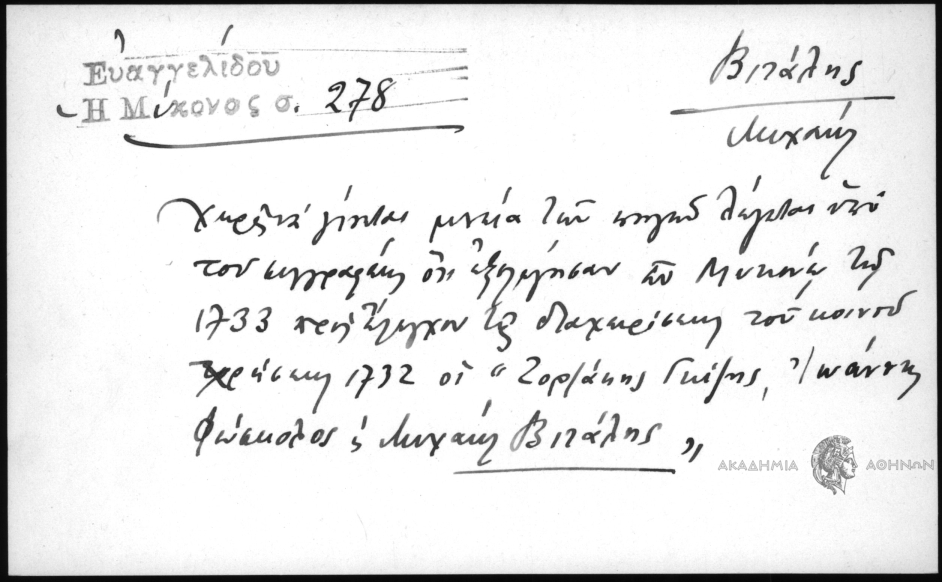 Εὐαγγελίδου
Ἡ Μύκονος σ. 278
Βιτάλης
Μιχαήλ
Χωρὶς νὰ γίνηται μνεία τῶν πηγῶν λέγεται ὑπὸ
τοῦ συγγραφέως ὅτι ἐξελέγησαν ὑπὸ Μυκονίων τῷ
1733 πρὸς ἔλεγχον τῆς διαχειρίσεως τοῦ κοινοῦ
χρήσεως 1732 οἱ "Τζορζάκης Γκίζης, Ἰωάννης
Φώσκολος ἢ Μιχαὴλ Βιτάλης"
ΑΚΑΔΗΜΙΑ ΑΘΗΝΩΝ